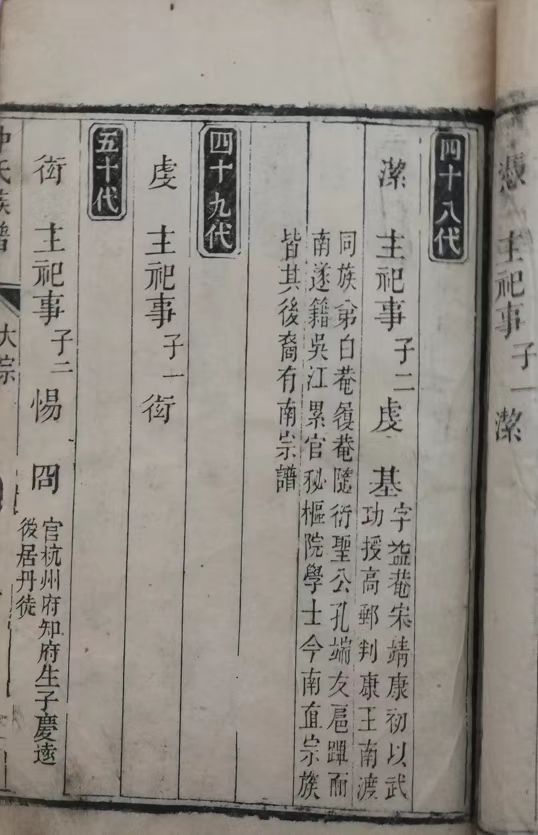 憑 主祀事 子一 潔
四十八代
潔 主祀事 子二 虔 基
字益菴宋靖康初以武
功授高郵判康王南渡
同族弟白菴履菴隨衍聖公孔端友扈蹕而
南遂籍吳江累官秘樞院學士今南直宗族
皆其後裔有南宗譜
四十九代
虔 主祀事 子一 衒
五十代
衒 主祀事 子二 惕 冏
官杭州府知府生子慶遠
後居丹徒
氏族譜 大宗